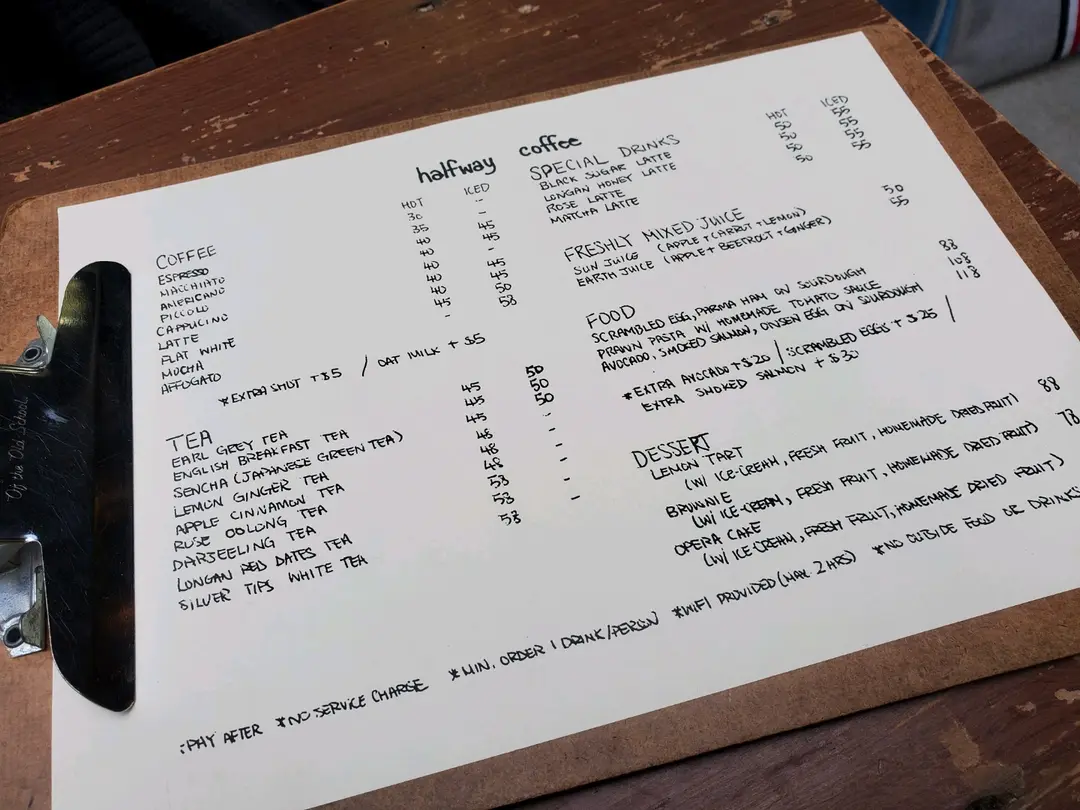 halfway coffee
HOT ICED
COFFEE
ESPRESSO
MACCHIATO
AMERICANO
PICCOLO
CAPPUCINO
LATTE
FLAT WHITE
MOCHA
AFFOGATO
30 -
35 -
40 45
40 45
40 -
40 45
40 45
45 50
- 58
*EXTRA SHOT + $5 / OAT MILK + $5
TEA
EARL GREY TEA 45 50
ENGLISH BREAKFAST TEA 45 50
SENCHA (JAPANESE GREEN TEA) 45 50
LEMON GINGER TEA 48 -
APPLE CINNAMON TEA 48 -
ROSE OOLONG TEA 48 -
DARJEELING TEA 58 -
LONGAN RED DATES TEA 58 -
SILVER TIPS WHITE TEA 58
HOT ICED
SPECIAL DRINKS
BLACK SUGAR LATTE 50 55
LONGAN HONEY LATTE 50 55
ROSE LATTE 50 55
MATCHA LATTE 50 55
FRESHLY MIXED JUICE
SUN JUICE (APPLE + CARROT + LEMON) 50
EARTH JUICE (APPLE + BEETROOT + GINGER) 55
FOOD
SCRAMBLED EGG, PARMA HAM ON SOURDOUGH 88
PRAWN PASTA W/ HOMEMADE TOMATO SAUCE 108
AVOCADO, SMOKED SALMON, ONSEN EGG ON SOURDOUGH 118
*EXTRA AVOCADO + $20 / SCRAMBLED EGGS + $25 /
EXTRA SMOKED SALMON + $30
DESSERT
LEMON TART 88
(W/ ICE-CREAM, FRESH FRUIT, HOMEMADE DRIED FRUIT)
BROWNIE 78
(W/ ICE-CREAM, FRESH FRUIT, HOMEMADE DRIED FRUIT)
OPERA CAKE
(W/ ICE-CREAM, FRESH FRUIT, HOMEMADE DRIED FRUIT)
*PAY AFTER *NO SERVICE CHARGE *MIN. ORDER 1 DRINK/PERSON *WIFI PROVIDED (MAX. 2 HRS) *NO OUTSIDE FOOD OR DRINKS
Of the Old School